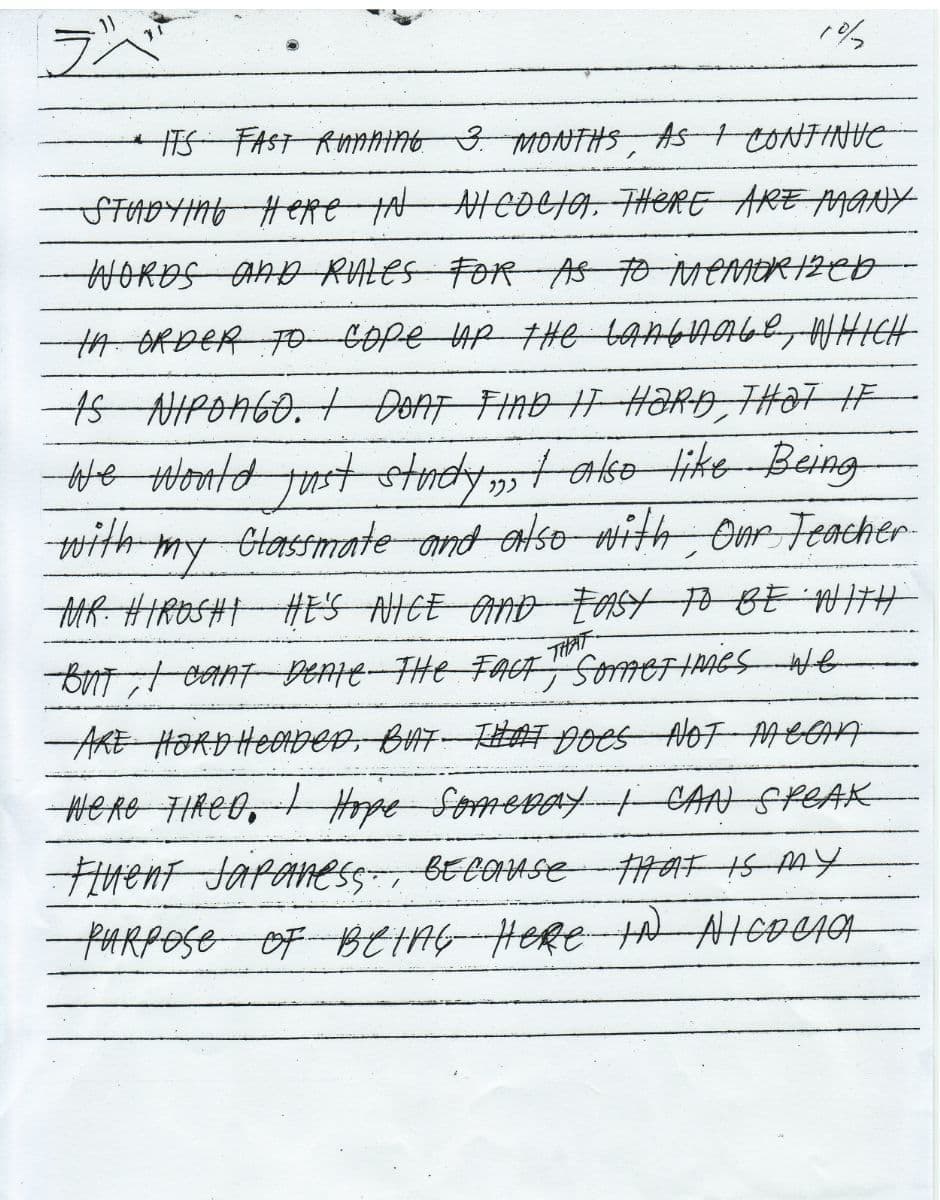 ラベ
10/5
* ITS FAST RUNNING 3 MONTHS, AS I CONTINUE
STUDYING HERE IN NICOCIA. THERE ARE MANY
WORDS AND RULES FOR AS TO MEMORIZED
IN ORDER TO COPE UP THE LANGUAGE, WHICH
IS NIPONGO. I DONT FIND IT HARD, THAT IF
We Would just study,,, I also like Being
with my Classmate and also with, Our Teacher
MR. HIROSHI HE'S NICE AND EASY TO BE WITH
BUT, I CANT DENIE THE FACT, THAT SOMETIMES WE
ARE HARDHEADED, BUT THAT DOES NOT MEAN
WERE TIRED. I Hope SOMEDAY I CAN SPEAK
FLUENT JAPANESS, BECAUSE THAT IS MY
PURPOSE OF BEING HERE IN NICOCIA